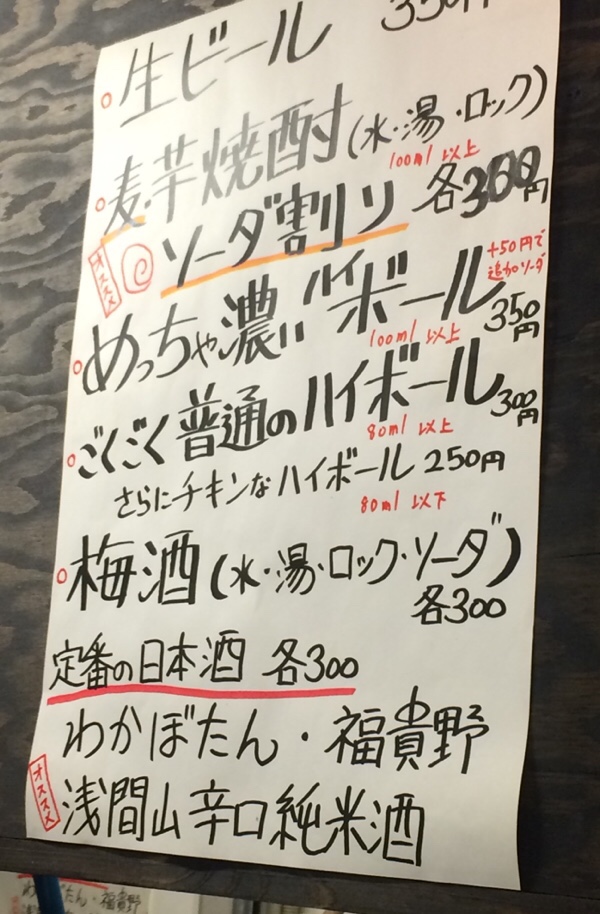 ○生ビール 350円
○麦・芋焼酎(水・湯・ロック)
100ml 以上
各300円
オススメ ソーダ割り
+50円で
追加ソーダ
○めっちゃ濃いハイボール 350円
100ml 以上
○ごくごく普通のハイボール 300円
80ml 以上
さらにチキンなハイボール 250円
80ml 以下
○梅酒(水・湯・ロック・ソーダ)
各300
定番の日本酒 各300
わかぼたん・福貴野
オススメ 浅間山辛口純米酒
わかぼたん・福貴野